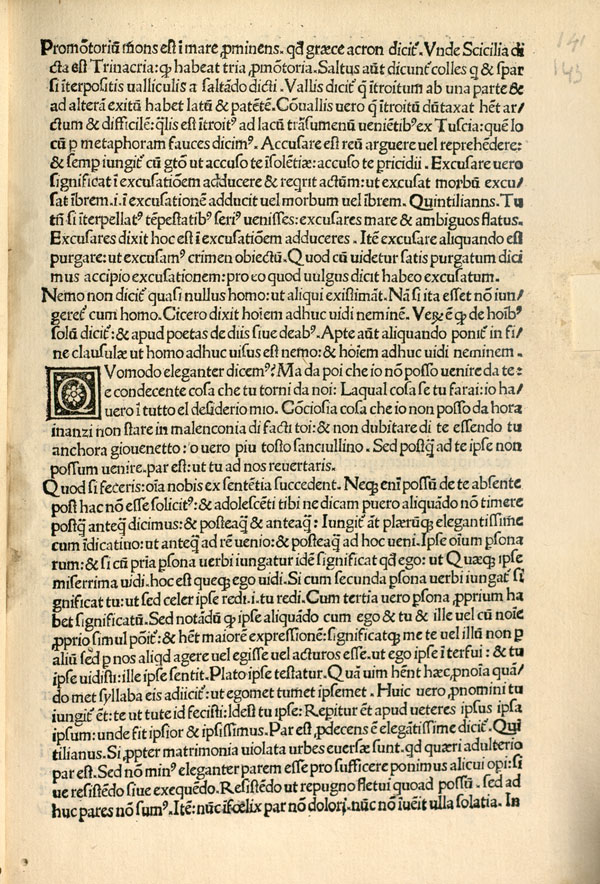 141
143
Promōtoriū mōns est ī mare ꝓminens. qđ græce acron dicit̄. Vnde Scicilia di
cta est Trinacria: ꝙ habeat tria ꝓmōtoria. Saltus aūt dicunt̄ colles q & spar
si īterpositis ualliculis a saltādo dicti. Vallis dicit̄ q ītroitum ab una parte &
ad alterā exitū habet latū & patētē. Cōuallis uero q̄ ītroitū dūtaxat hēt ar/
ctum & difficilē: q̄lis est ītroitꝰ ad lacū trāsumenū ueniētibꝰ ex Tuscia: quē lo
cū p metaphoram fauces dicimꝰ. Accusare est reū arguere uel reprehēdere:
& semp iungit̄ cū gtō ut accuso te īsolētiæ: accuso te pricidii. Excusare uero
significat ī excusatiōem adducere & reqrit actūm: ut excusat morbū excu/
sat ībrem. i. ī excusationē adducit uel morbum uel ībrem. Quintilianns. Tu
tn̄ si īterpellatꝰ tēpestatibꝰ seriꝰ uenisses: excusares mare & ambiguos flatus.
Excusares dixit hoc est ī excusatiōem adduceres. Itē excusare aliquando est
purgare: ut excusamꝰ crimen obiectū. Quod cū uidetur satis purgatum dici
mus accipio excusationem: pro eo quod uulgus dicit habeo excusatum.
Nemo non dicit̄ quasi nullus homo: ut aliqui existimāt. Nā si ita esset nō iun/
geret̄ cum homo. Cicero dixit hoīem adhuc uidi neminē. Veꝝ ē ꝙ de hoībꝰ
solū dicit̄: & apud poetas de diis siue deabꝰ. Apte aūt aliquando ponit̄ in fi/
ne clausulæ ut homo adhuc uisus est nemo: & hoīem adhuc uidi neminem.
QVomodo eleganter dicemꝰ? Ma da poi che io nō posso uenire da te:
e condecente cosa che tu torni da noi: Laqual cosa se tu farai: io ha/
uero ī tutto el desiderio mio. Cōciosia cosa che io non posso da hora
inanzi non stare in malenconia di facti toi: & non dubitare di te essendo tu
anchora giouenetto: o uero piu tosto fanciullino. Sed postq̄ ad te ipse non
possum uenire. par est: ut tu ad nos reuertaris.
Quod si feceris: oīa nobis ex sentētia succedent. Neqꝫ enī possū de te absente
post hac nō esse solicitꝰ: & adolescēti tibi ne dicam puero aliquādo nō timere
postq̄ anteq̄ dicimus: & posteaq̄ & anteaq̄: Iungit̄ āt plærūqꝫ elegantissime
cum īdicatiuo: ut anteq̄ ad rē uenio: & posteaq̄ ad hoc ueni. Ipse oīum psona
rum: & si cū pria psona uerbi iungatur idē significat qđ ego: ut Quæqꝫ ipse
miserrima uidi. hoc est queqꝫ ego uidi. Si cum secunda psona uerbi iungat̄ si
gnificat tu: ut sed celer ipse redi. i. tu redi. Cum tertia uero psona ꝓprium ha
bet significatū. Sed notādū ꝙ ipse aliquādo cum ego & tu & ille uel cū noīe
ꝓprio simul pōit̄: & hēt maiorē expressionē: significatqꝫ me te uel illū non p
aliū sed p nos aliqd agere uel egisse uel acturos esse. ut ego ipse īterfui: & tu
ipse uidisti: ille ipse sentit. Plato ipse testatur. Quā uim hēnt hæc ꝓnoīa quā/
do met syllaba eis adiicit̄: ut egomet tumet ipsemet. Huic uero ꝓnomini tu
iungit̄ ēt: te ut tute id fecisti: Idest tu ipse: Repitur ēt apud ueteres ipsus ipsa
ipsum: unde fit ipsior & ipsissimus. Par est ꝓdecens ē elegātissime dicit̄. Qui
tilianus. Si ꝓpter matrimonia uiolata urbes euersæ sunt. qđ quæri adulterio
par est. Sed nō minꝰ eleganter parem esse pro sufficere ponimus alicui opi: si
ue resistēdo siue exequēdo. Resistēdo ut repugno fletui quoad possū. sed ad
huc pares nō sumꝰ. Itē: nūc ifœlix par nō dolori. nūc nō iuēit ulla solatia. In